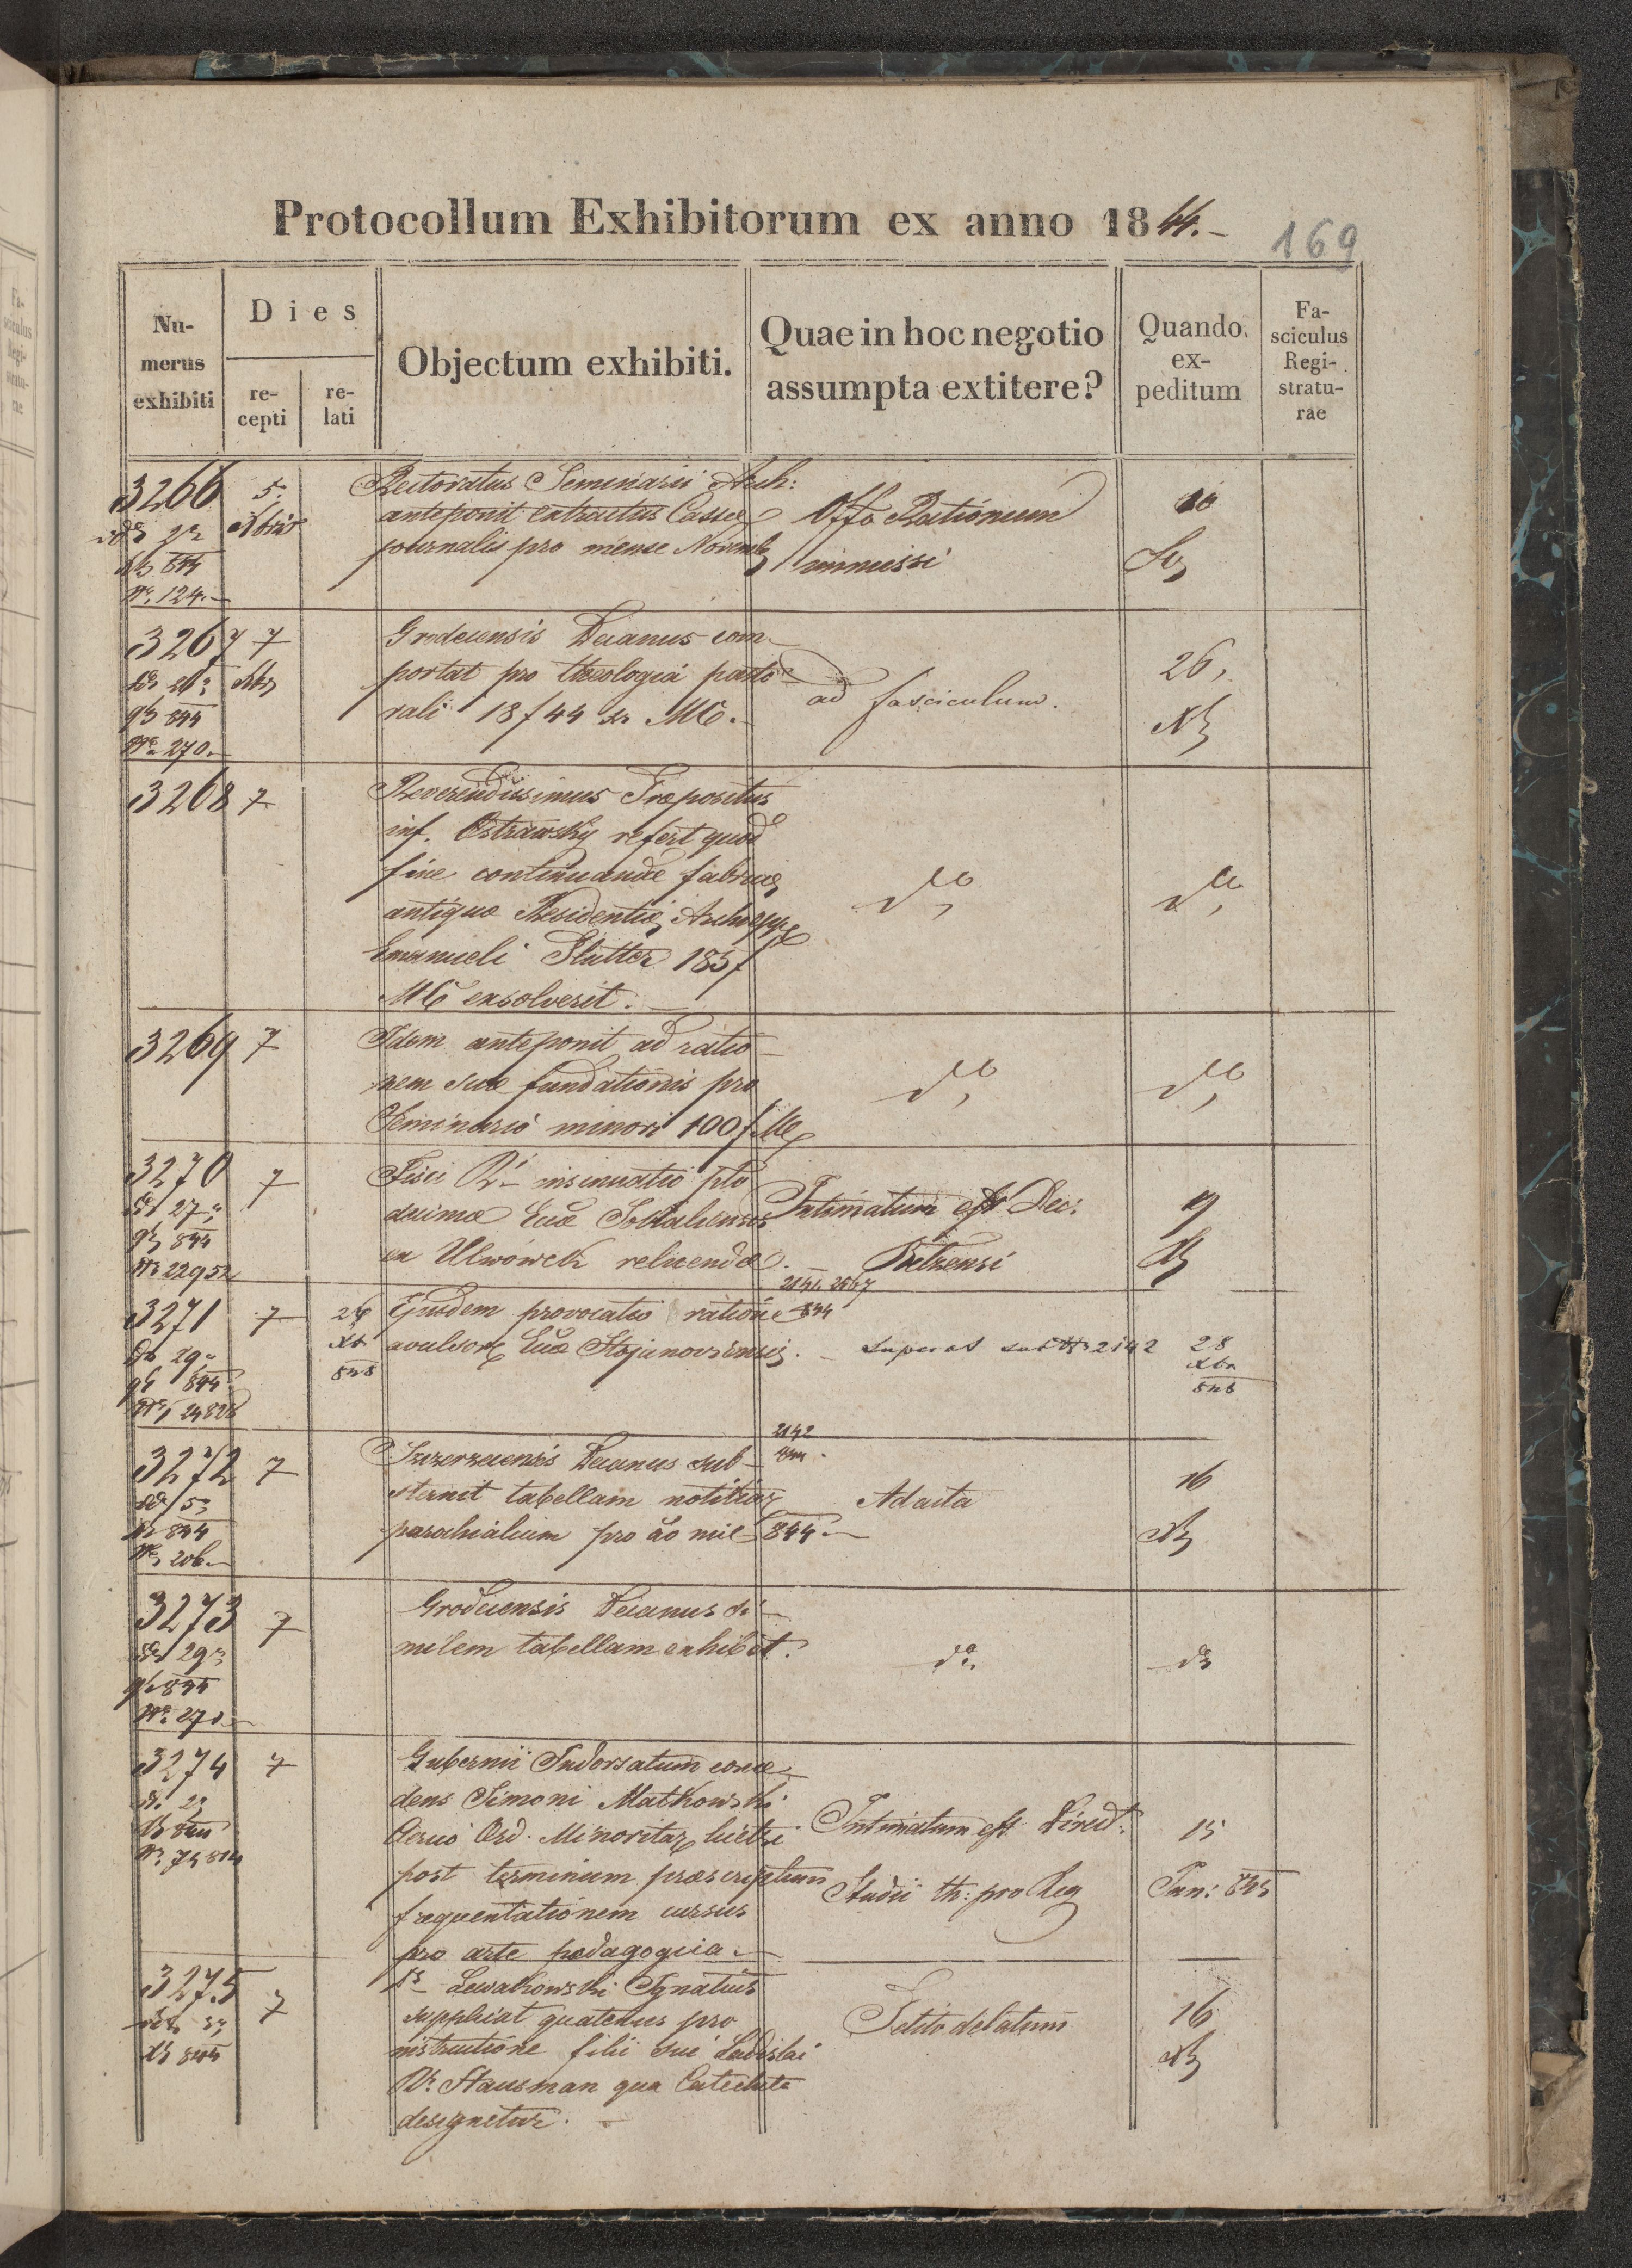 Protocollum Exhibitorum ex anno 1844.-
169
Numerus exhibiti
Dies
recepti
relati
Objectum exhibiti.
Quae in hoc negotio assumpta extitere?
Quando expeditum
Fasciculus Registraturae
3266
5.
Rectoratus Seminarii Arch:
anteponit extractus Cassae
journalis pro mense Novemb
Offo Rationum
immissi
N. 124.-
3267
7
Grodecensis Decanus com-
portat pro theologia pasto-
rali 18 f 44 xr MC.
ad fasciculum.
26.
Nr. 270.
3268
7
Reverendissimus Praepositus
inf. Ostrawsky refert quod
fine continuandae fabricae
antiquae Residentiae Archiepp
Emanueli 185 f
MC exsolverit.
dto
dto
3269
7
Idem anteponit ad ratio-
nem suae fundationis pro
Seminario minori 100 f MC
dto
dto
3270
7
Fisci Ri insinuatio pto
decimae Eccae Sokaliensis
in Ulwowek relicendae.
Intimatum est Dec.
Belzensi
9
27
844
Nr 22952
3271
7
26
Xbr
Ejusdem provocatio ratione
avulsor Eccae Stojanoviensis.
2141. 2567
844
superat sub Nr 2142
28
Xbr
29
844
Nr 24828
3272
7
Szczerzecensis Decanus sub-
sternit tabellam notitiar
parochialium pro ao mil 844.
2142
844.
Ad acta
16
5
844
Nr 206.
3273
7
Grodecensis Decanus si-
milem tabellam exhibet.
do.
do
29
844
Nr. 271.
3274
7
Gubernii Indorsatum conce-
dens Simoni Matkowski
Clerico Ord. Minoritar licet
post terminum praescriptum
frequentationem cursus
pro arte paedagogica.
Intimatum est Direct.
Studii th: pro Reg
15
Jan: 845
3275
7
Lewakowski Ignatius
supplicat quatenus pro
instructione filii sui Ladislai
Stausman qua Catecheta
designetur.
Petito delatum
16